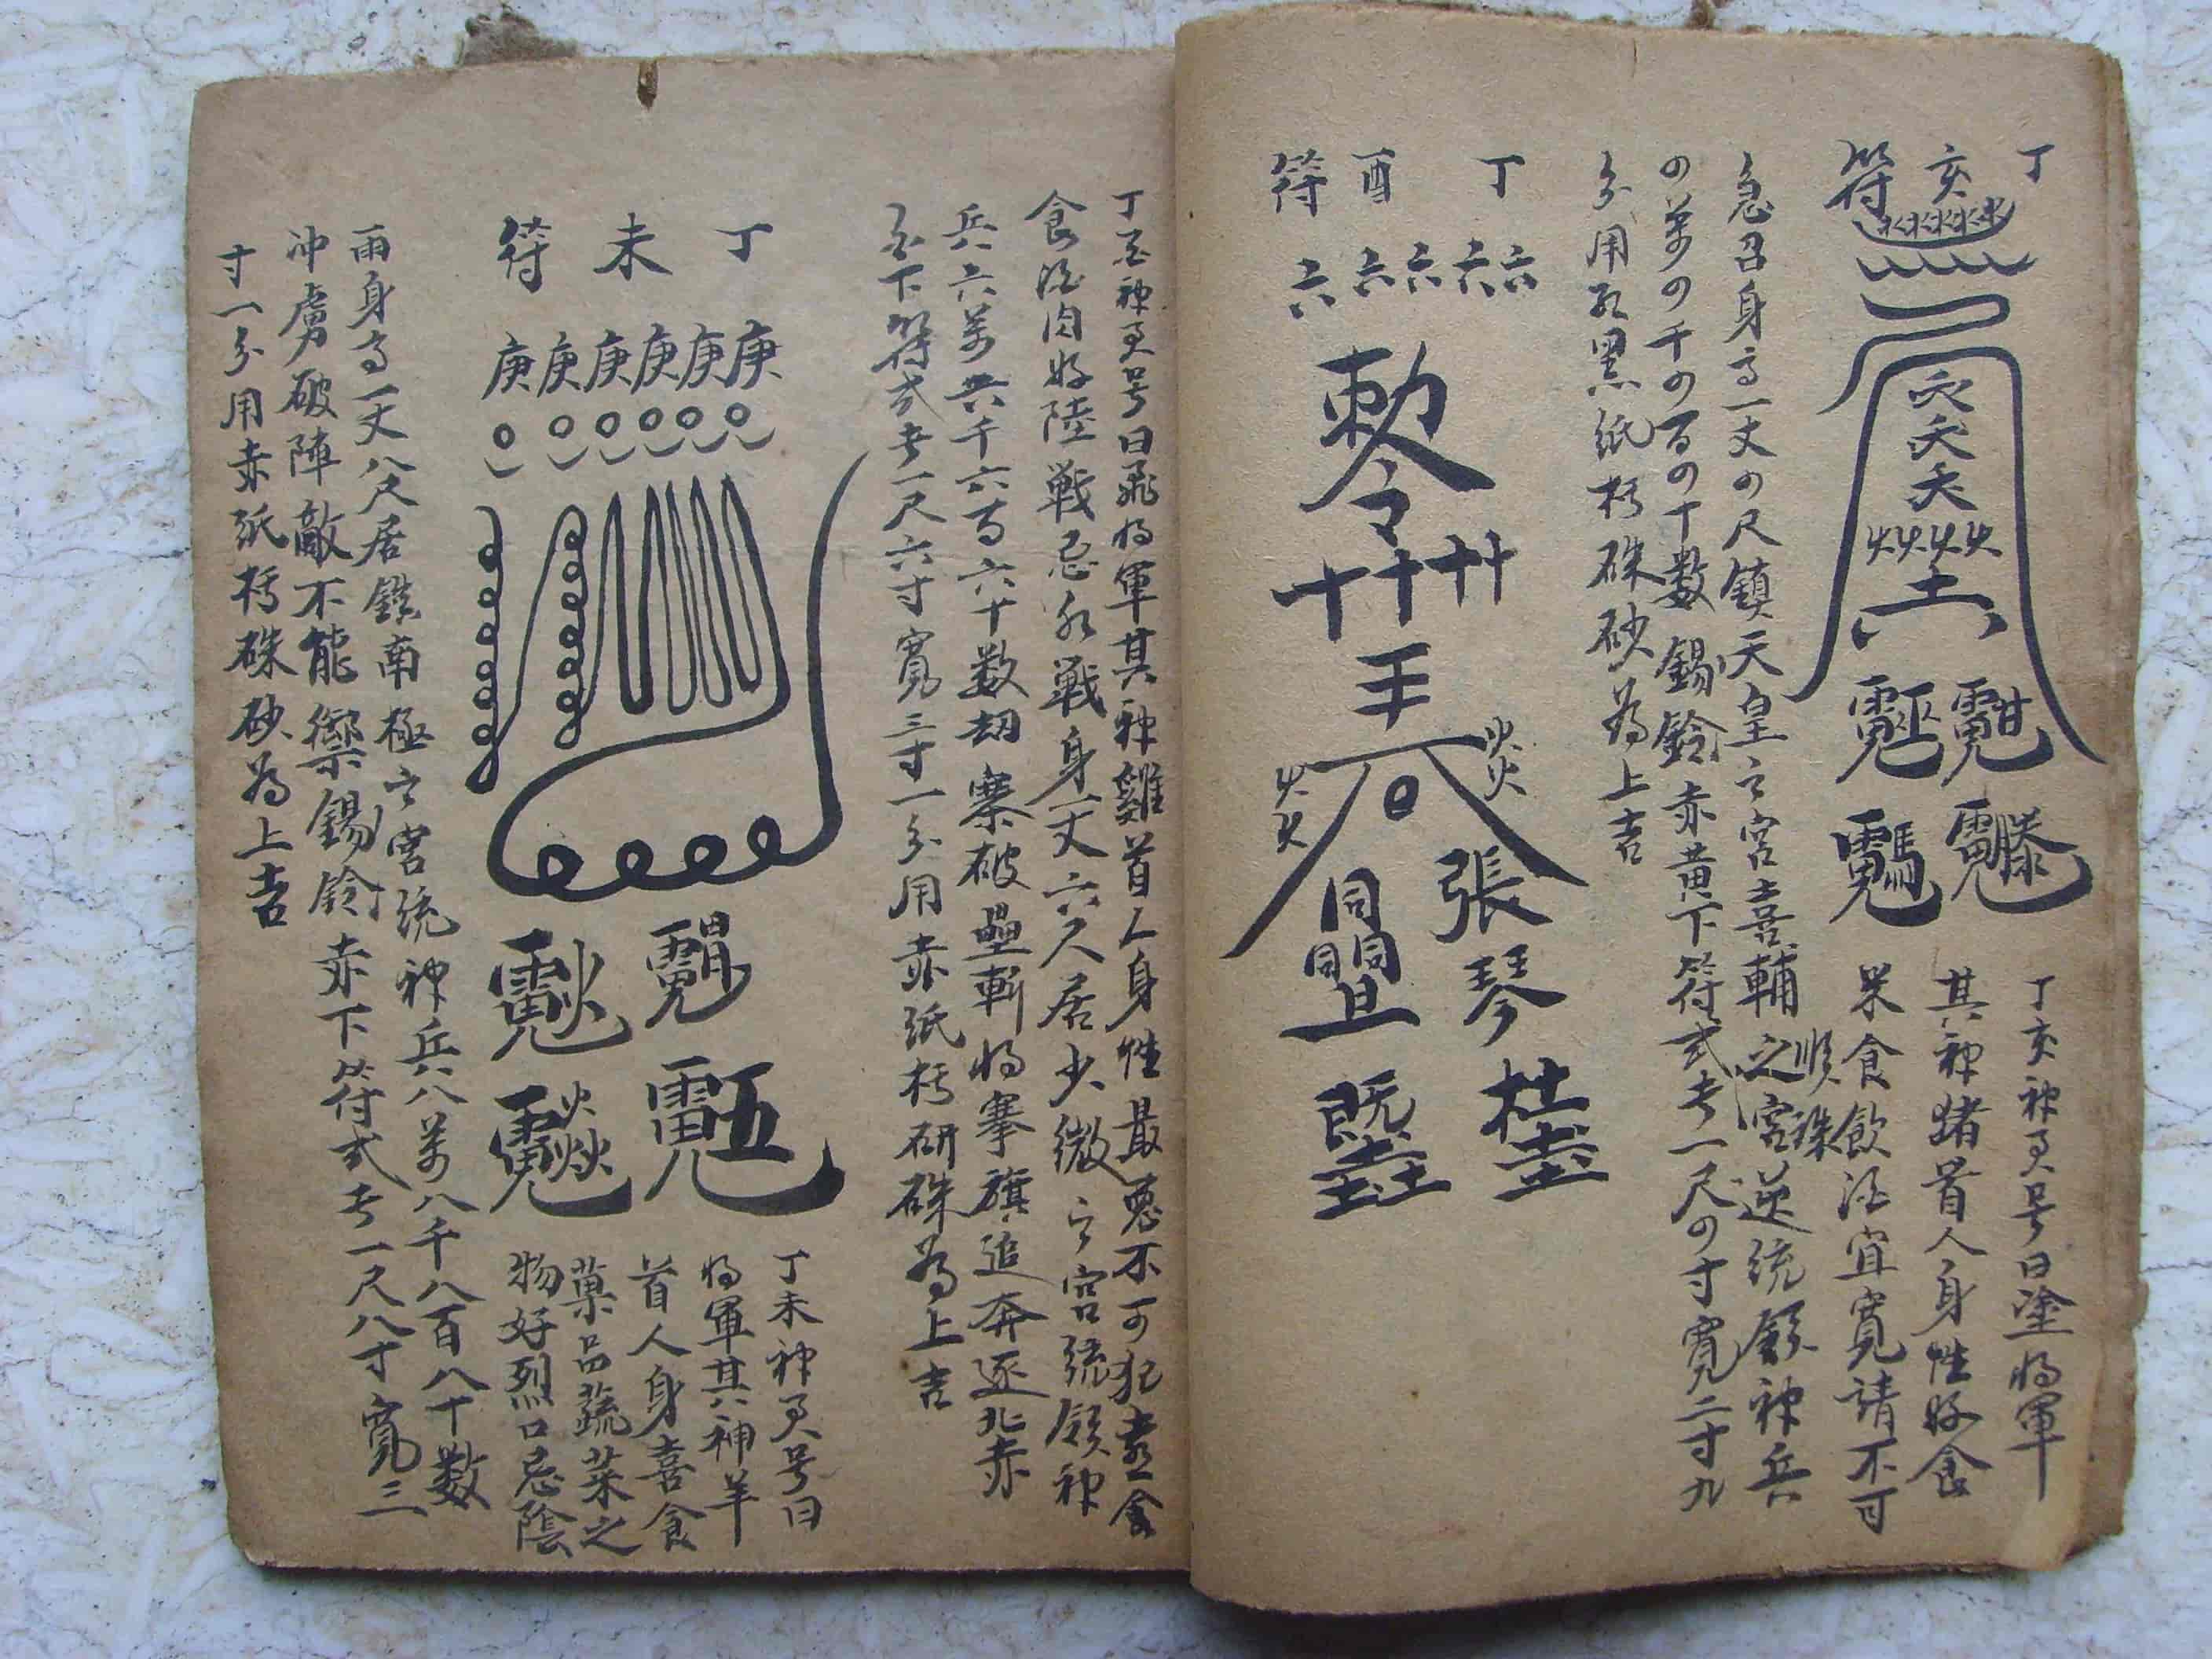 丁亥符
丁亥神君号曰塗将軍
其神猪首人身性好食
呆食飲酒宜寬請不可
急召身高一丈の尺鎮天皇之宮喜輔之宮逆統領神兵
順珠
の萬の千の百の十数錫鈴赤黄下符式长一尺の寸寬二寸九
分用紅黑紙杇硃砂為上吉
丁酉符
六六六六六
勅令
十十卄
張琴
同同同旦
丁酉神君号曰飛将軍其神雞首人身性最惡不可犯喜食
食酒肉好陸戰忌水戰身丈六尺居少微之宮統領神
兵六萬六千六百六十数劫寨破壘斬将搴旗追奔逐北赤
白下符式长一尺六寸寬三寸一分用赤紙杇研硃為上吉
丁未符
庚庚庚庚庚庚
丁未神君号曰
将軍其神羊
首人身喜食
菓品蔬菜之
物好烈口忌陰
雨身高一丈八尺居鎮南極之宮統神兵八萬八千八百八十数
冲虜破陣敵不能禦錫鈴赤下符式长一尺八寸寬三
寸一分用赤紙杇硃砂為上吉